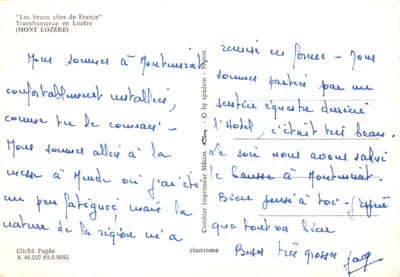 "Les beaux sites de France"
Transhumance en Lozère
(MONT LOZERE)
Nous sommes à Montmirat
confortablement installées,
comme tu le connais -
Nous sommes allées à la
messe à Mende où j'ai été
un peu fatiguée, mais la
nature de la région m'a
Cliché Pagès
A 48.027.89.0.0092
Combier Imprimeur Mâcon
"cim" - © by spadem - Mâcon
cimcrome
remise en forme - Nous
sommes parties par un
sentier équestre derrière
l'Hotel, c'était très beau.
Le soir nous avons suivi
la à Montmirat.
Bien pensé à toi - j'espère
que tout va bien
Bises très grosses